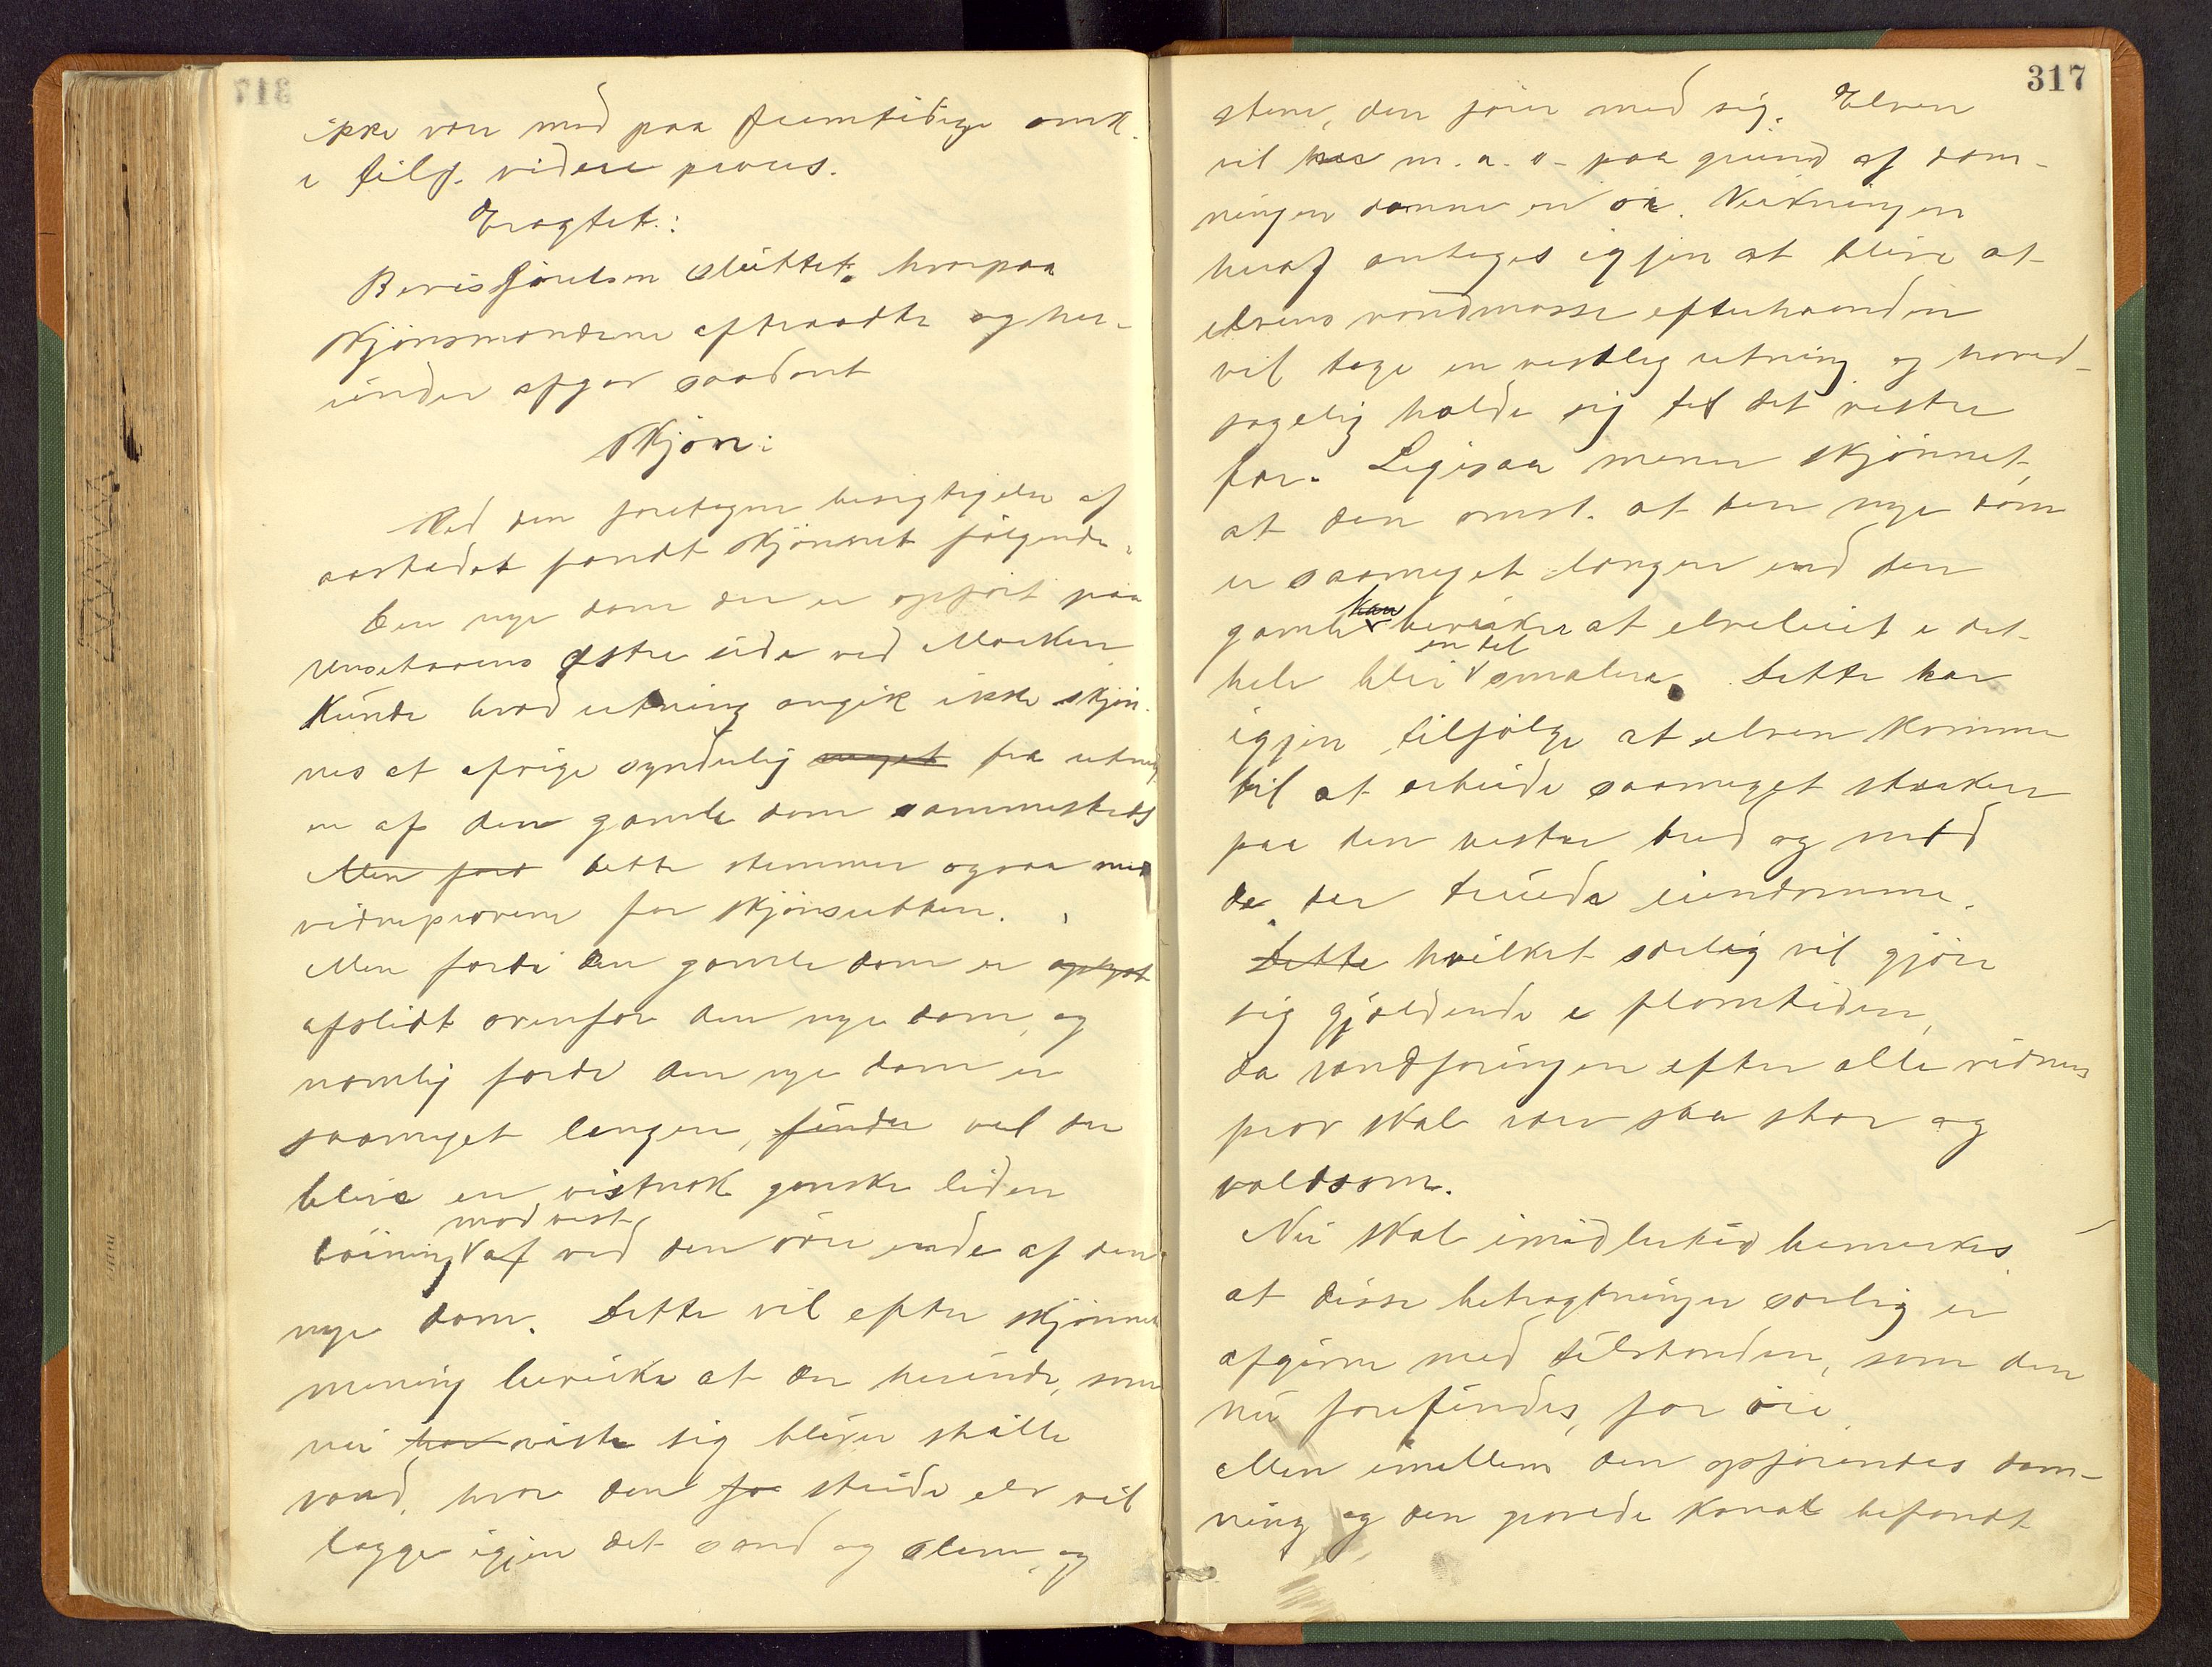 ikke var med paa fremtidige omk.
i tilf. videre proces.
Eragtet:
Bevisførelsen sluttet, hvorpaa
skjønsmændene aftraadte og her-
under afgav saadant
Skjøn:
Ved den foretagne besigtigelse af
aastedet fandt skjønnet følgende:
Den nye dam der er opført paa
østre side ved Moeken
kunde hvad retning angik ikke skjøn-
nes at afvige synderlig meget fra retning
en af den gamle dam sammesteds
Men ford dette stemmer ogsaa med
vidneprovene for skjønsretten.
Men fordi den gamle dam er
afslidt ovenfor den nye dam, og
nemlig fordi den nye dam er
saameget længere, finder vil der
blive en vistnok ganske liden
mod vest
bøining af ved den øvre ende af den
nye dam. Dette vil efter skjønnets
mening bevirke at der herinde, som
nu har viste sig bliver stille
vand, hvor den for stride elv vil
lægge igjen det sand og slam, og
317
stene, den fører med sig. Elven
vil her m. a. o. paa grund af dæm-
ningen danne en ør. Virkningen
heraf antages igjen at blive at
elvens vandmasse efterhaanden
vil tage en vestlig retning og hoved-
sagelig holde sig til det vestre
far. Ligesaa mener skjønnet,
at den omst. at den nye dam
er saameget længere end den
kan
gamle bevirker at elveleiet i det
en del
hele blir smalere. Dette har
igjen tilfølge at elven kommer
til at arbeide saameget stærkere
paa den vestre bred og mod
de der truede eiendomme.
Dette hvilket særlig vil gjøre
sig gjældende i flomtiden,
da vandføringen efter alle vidnes
prov skal være saa stor og
voldsom.
Nu skal imidlertid bemerkes
at disse betragtninger særlig er
afgivne med tilstanden, som den
nu forefindes, for øie.
Men imellem den opførendes dæm-
ning og den gravede kanal befandt